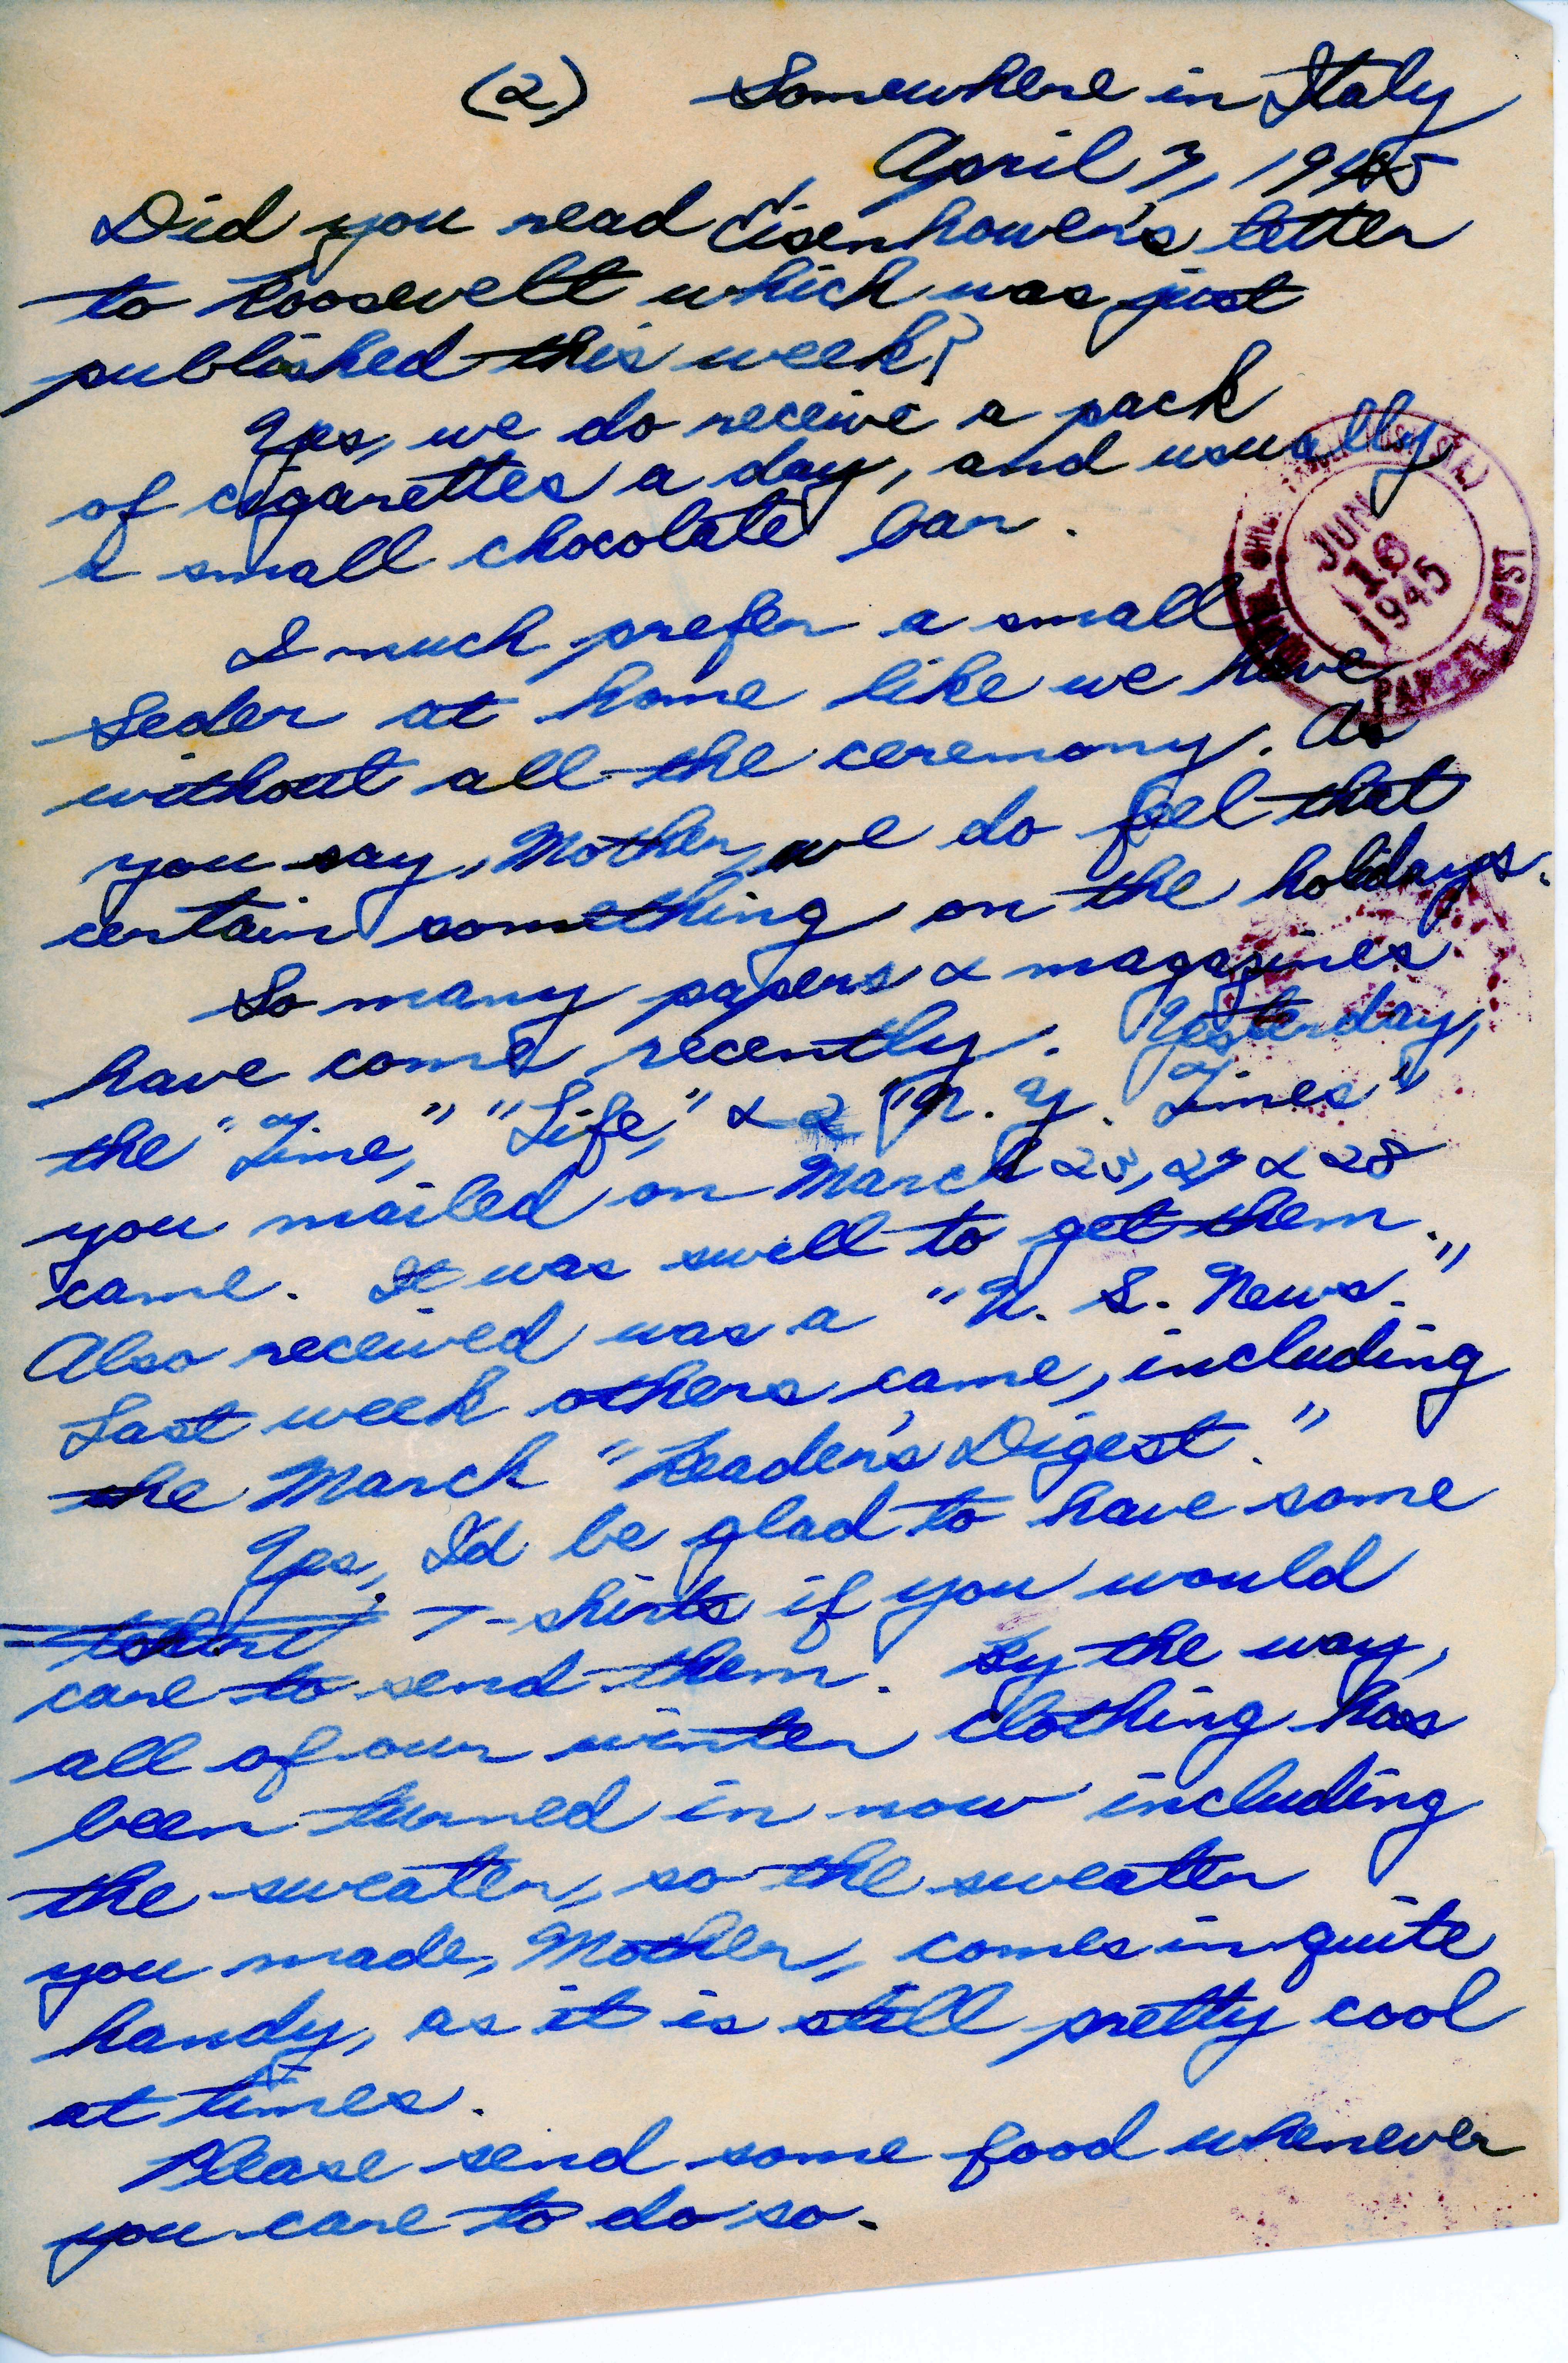 (2) Somewhere in Italy
April 3, 1945
Did you read Eisenhower's letter
to Roosevelt which was just
published this week?
Yes, we do receive a pack
of cigarettes a day, and usually
a small chocolate bar.
I much prefer a small
Seder at home like we have
without all the ceremony. As
you say, Mother, we do feel that
certain something on the holidays.
So many papers & magazines
have come recently. Yesterday,
the "Time," "Life," & 2 "N. Y. Times"
you mailed on March 25, 27 & 28
came. It was swell to get them.
Also received was a "U. S. News."
Last week others came, including
the March "Reader's Digest."
Yes, I'd be glad to have some
T-shirts if you would
care to send them. By the way,
all of our winter clothing has
been turned in now including
the sweater, so the sweater
you made, Mother, comes in quite
handy, as it is still pretty cool
at times.
Please send some food whenever
you care to do so.
JUN
16
1945
PARCEL POST